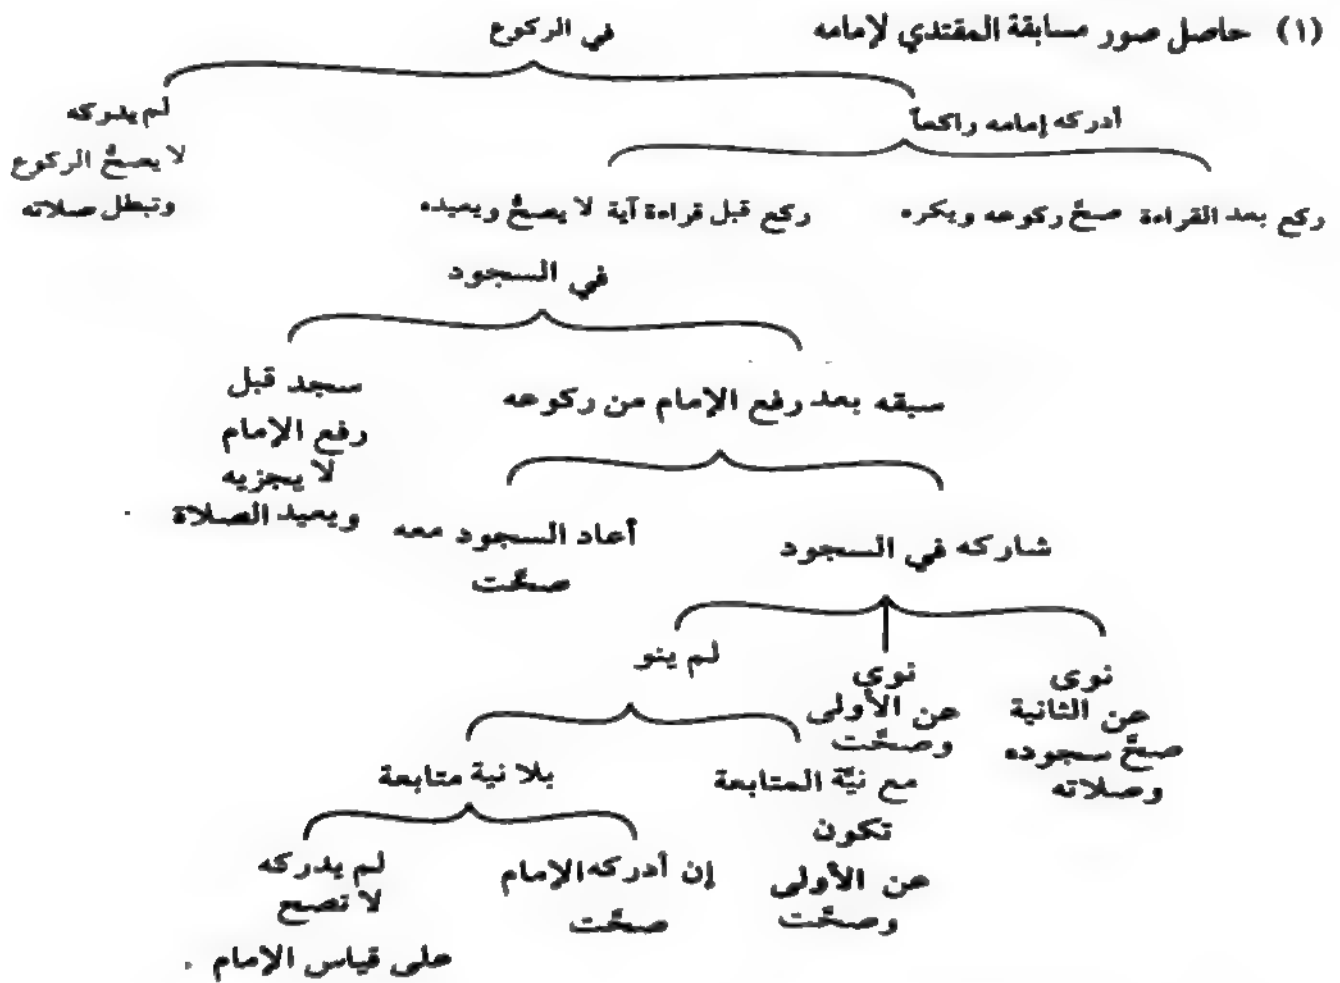 (١) حاصل صور مسابقة المقتدي لإمامه
في الركوع
أدركه إمامه راكعاً
لم يدركه
لا يصحُّ الركوع
وتبطل صلاته
ركع بعد القراءة صحَّ ركوعه ويكره
ركع قبل قراءة آية لا يصحُّ ويعيده
في السجود
سبقه بعد رفع الإمام من ركوعه
سجد قبل
رفع الإمام
لا يجزيه
ويعيد الصلاة
شاركه في السجود
أعاد السجود معه
صحَّت
نوى
عن الثانية
صحَّ سجوده
وصلاته
نوى
عن الأولى
وصحَّت
لم ينو
مع نيَّة المتابعة
تكون
عن الأولى
وصحَّت
بلا نية متابعة
إن أدركه الإمام
صحَّت
لم يدركه
لا تصح
على قياس الإمام .